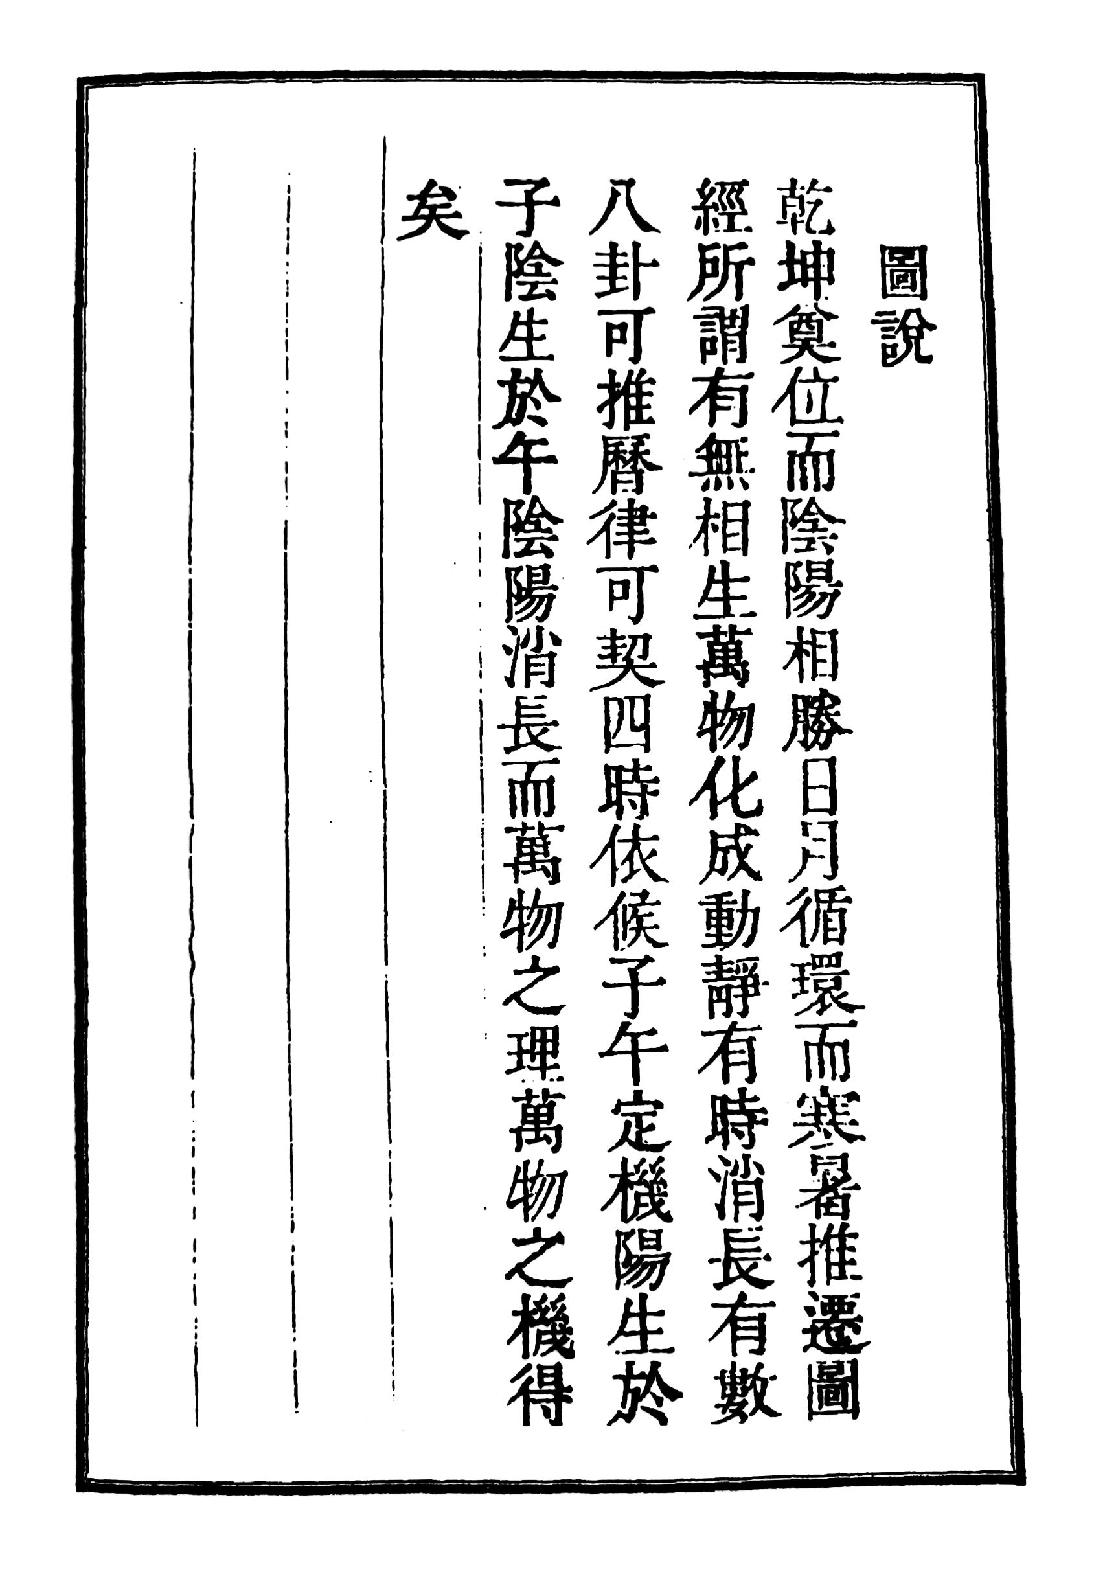 圖說
乾坤奠位而陰陽相勝日月循環而寒暑推遷圖
經所謂有無相生萬物化成動靜有時消長有數
八卦可推曆律可契四時依候子午定機陽生於
子陰生於午陰陽消長而萬物之理萬物之機得
矣